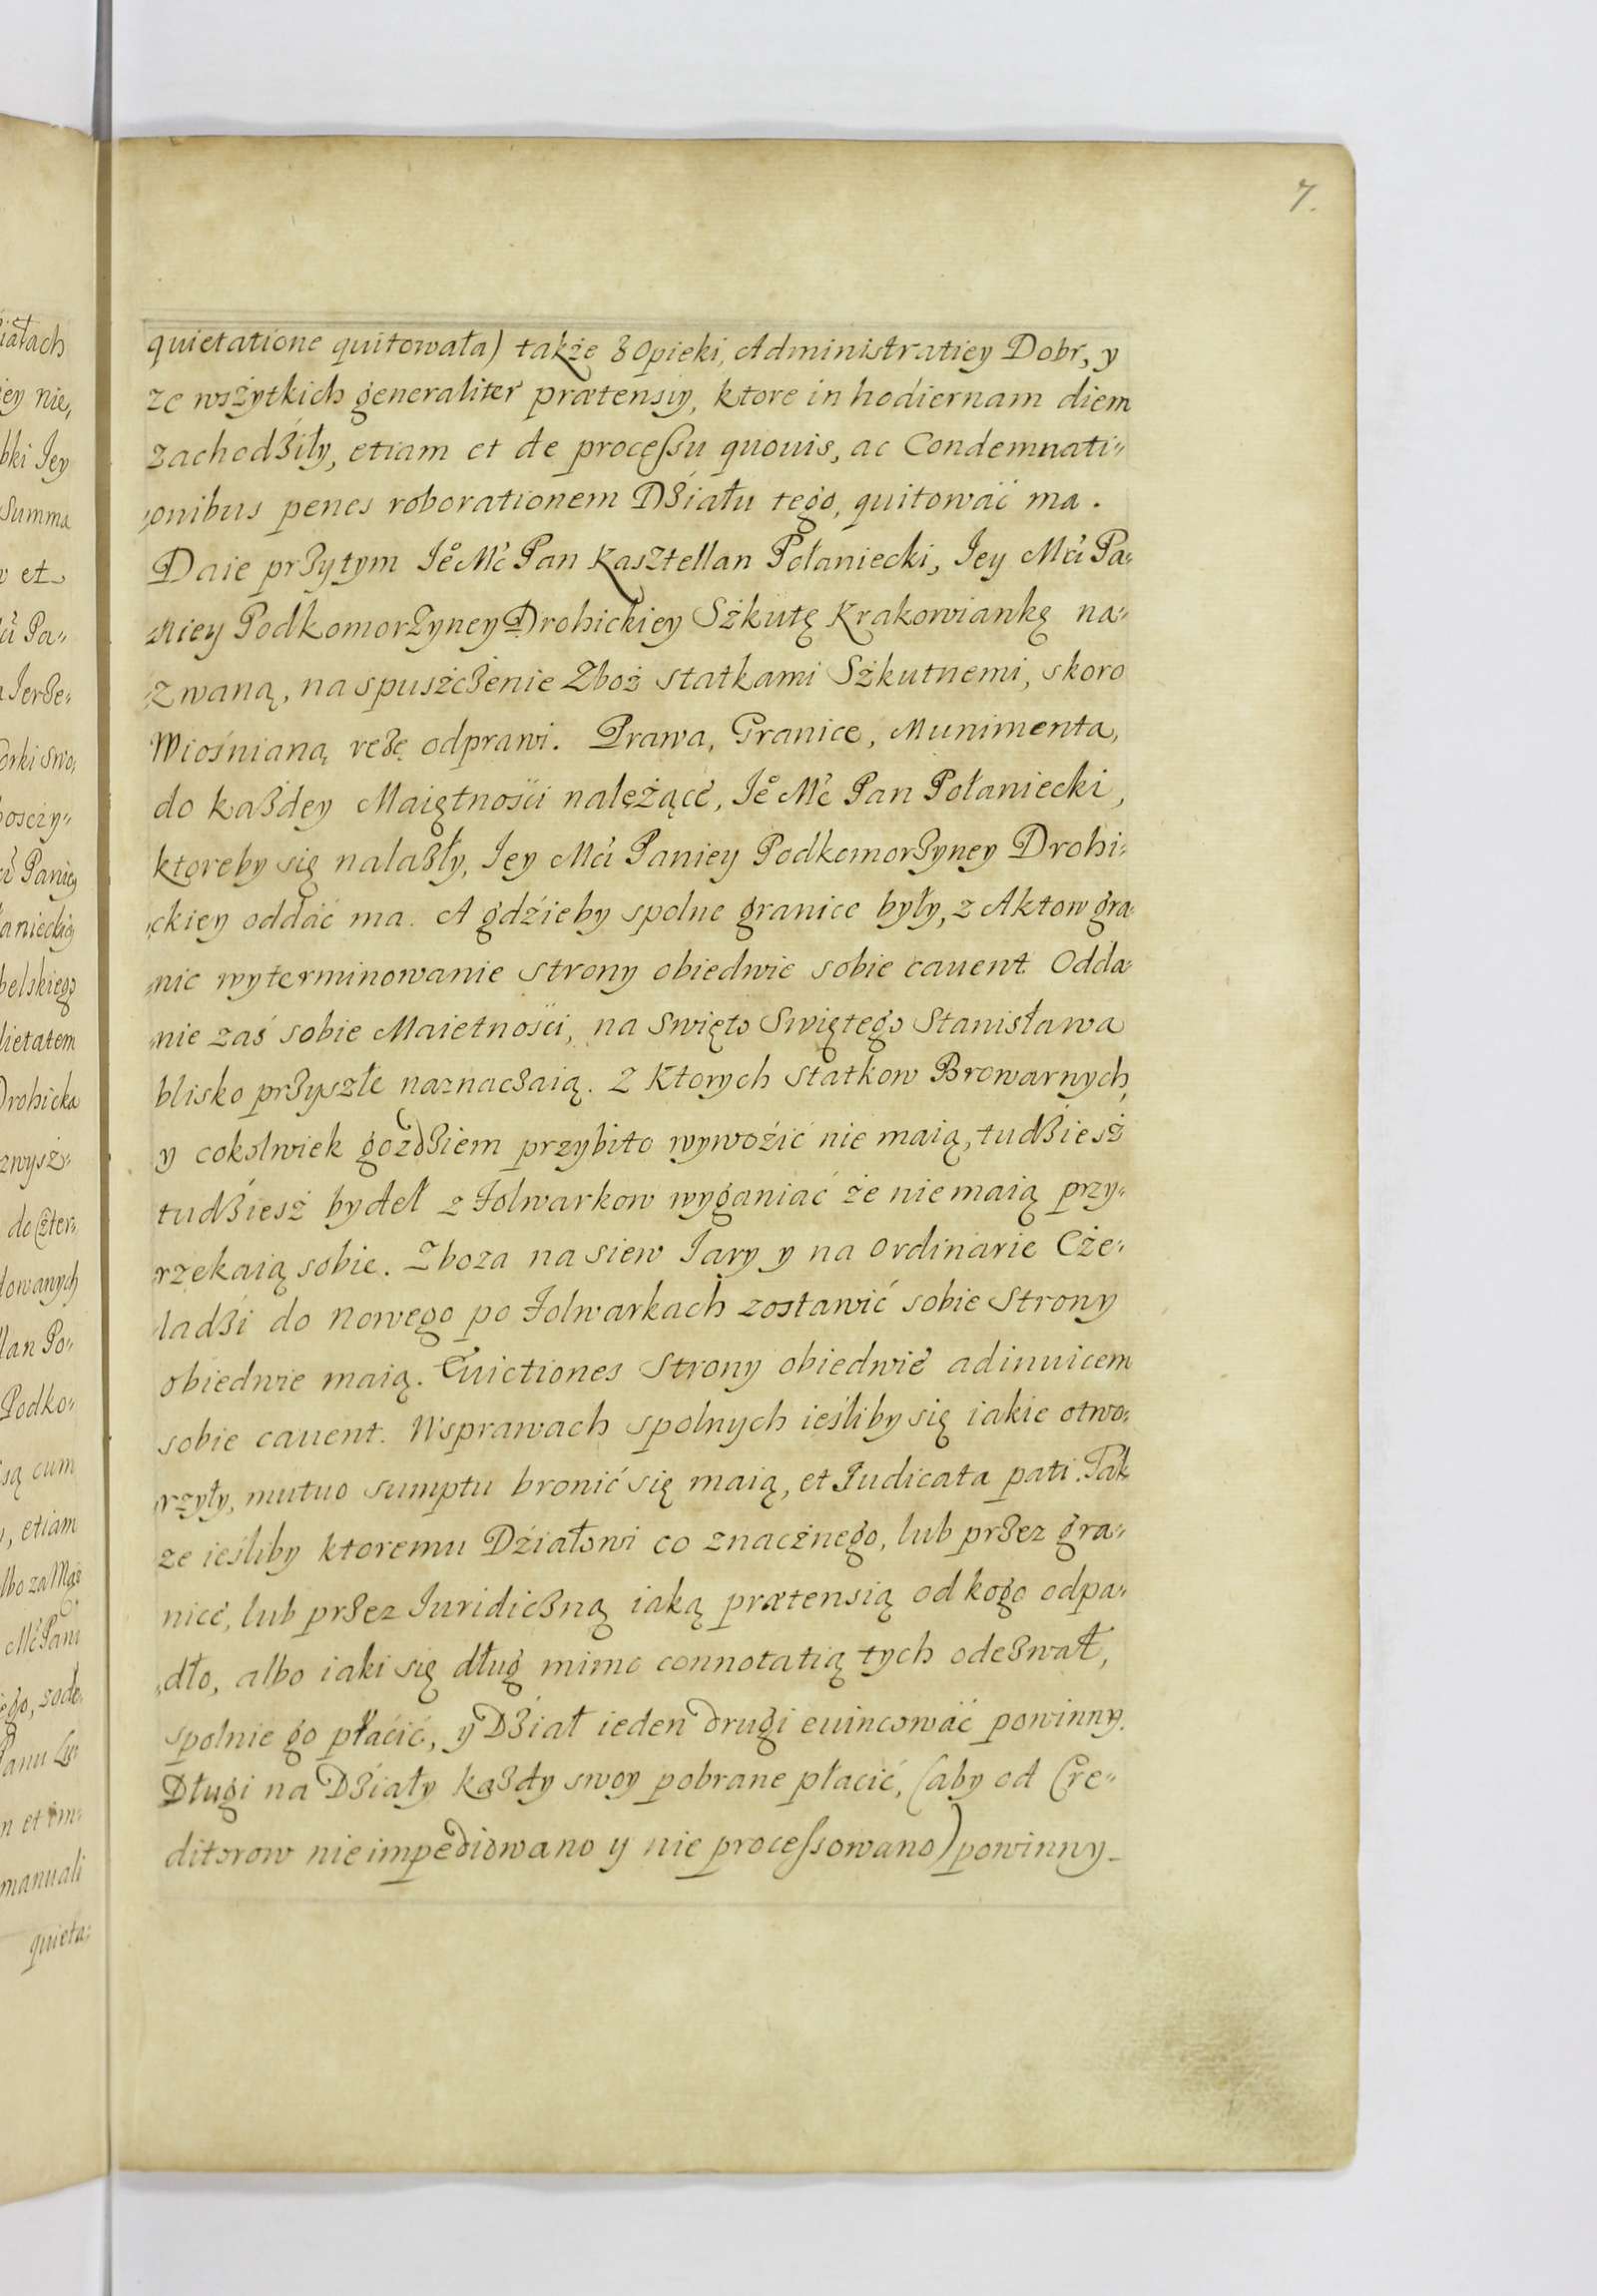 7.
quietatione quitowała) także z Opieki, Administratiey Dobr, y
ze wszytkich generaliter prætensiy, ktore in hodiernam diem
zachodziły, etiam et de processu quouis, ac Condemnati„
„onibus penes roborationem Działu tego, quitować ma.
Daie przytym Ie͠ Mc Pan Kasztellan Połaniecki, Iey Mci Pa„
„niey Podkomorzyney Drohickiey Szkutę Krakowiankę na„
„zwaną, na spuszczenie Zboż statkami Szkutnemi, skoro
Wiośnianą rezę odprawi. Prawa, Granice, Munimenta,
do każdey Maiętności należące, Ie͠ Mc Pan Połaniecki,
ktoreby się nalazły, Iey Mci Paniey Podkomorzyney Drohi„
„ckiey oddać ma. A gdzieby spolne granice były, z Aktow gra„
„nic wyterminowanie strony obiedwie sobie cauent. Odda„
„nie zaś sobie Maietności, na Swięto Swiętego Stanisława
blisko przyszłe naznaczaią. Z Ktorych statkow Browarnych,
y cokolwiek gozdziem przybito wywozić nie maią, tudziesz
tudziesz bydeł z Folwarkow wyganiać że nie maią przy„
„rzekaią sobie. Zboza na siew Iary y na ordinarie Cze„
„ladzi do nowego po Folwarkach zostawić sobie Strony
obiedwie maią. Euictiones Strony obiedwie adinuicem
sobie cauent. W sprawach spolnych ieśliby się iakie otwo„
„rzyły, mutuo sumptu bronić się maią, et Iudicata pati. Tak
ze ieśliby ktoremu Działowi co znacznego, lub przez gra„
nice, lub przez Iuridiczną iaką prætensią od kogo odpa„
„dło, albo iaki się dług mimo connotatią tych odezwał,
spolnie go płacić, y Dział ieden drugi euincować powinny.
Długi na Działy każdy swoy pobrane płacić, (aby od Cre„
ditorow nie impediowano y nie processowano) powinny